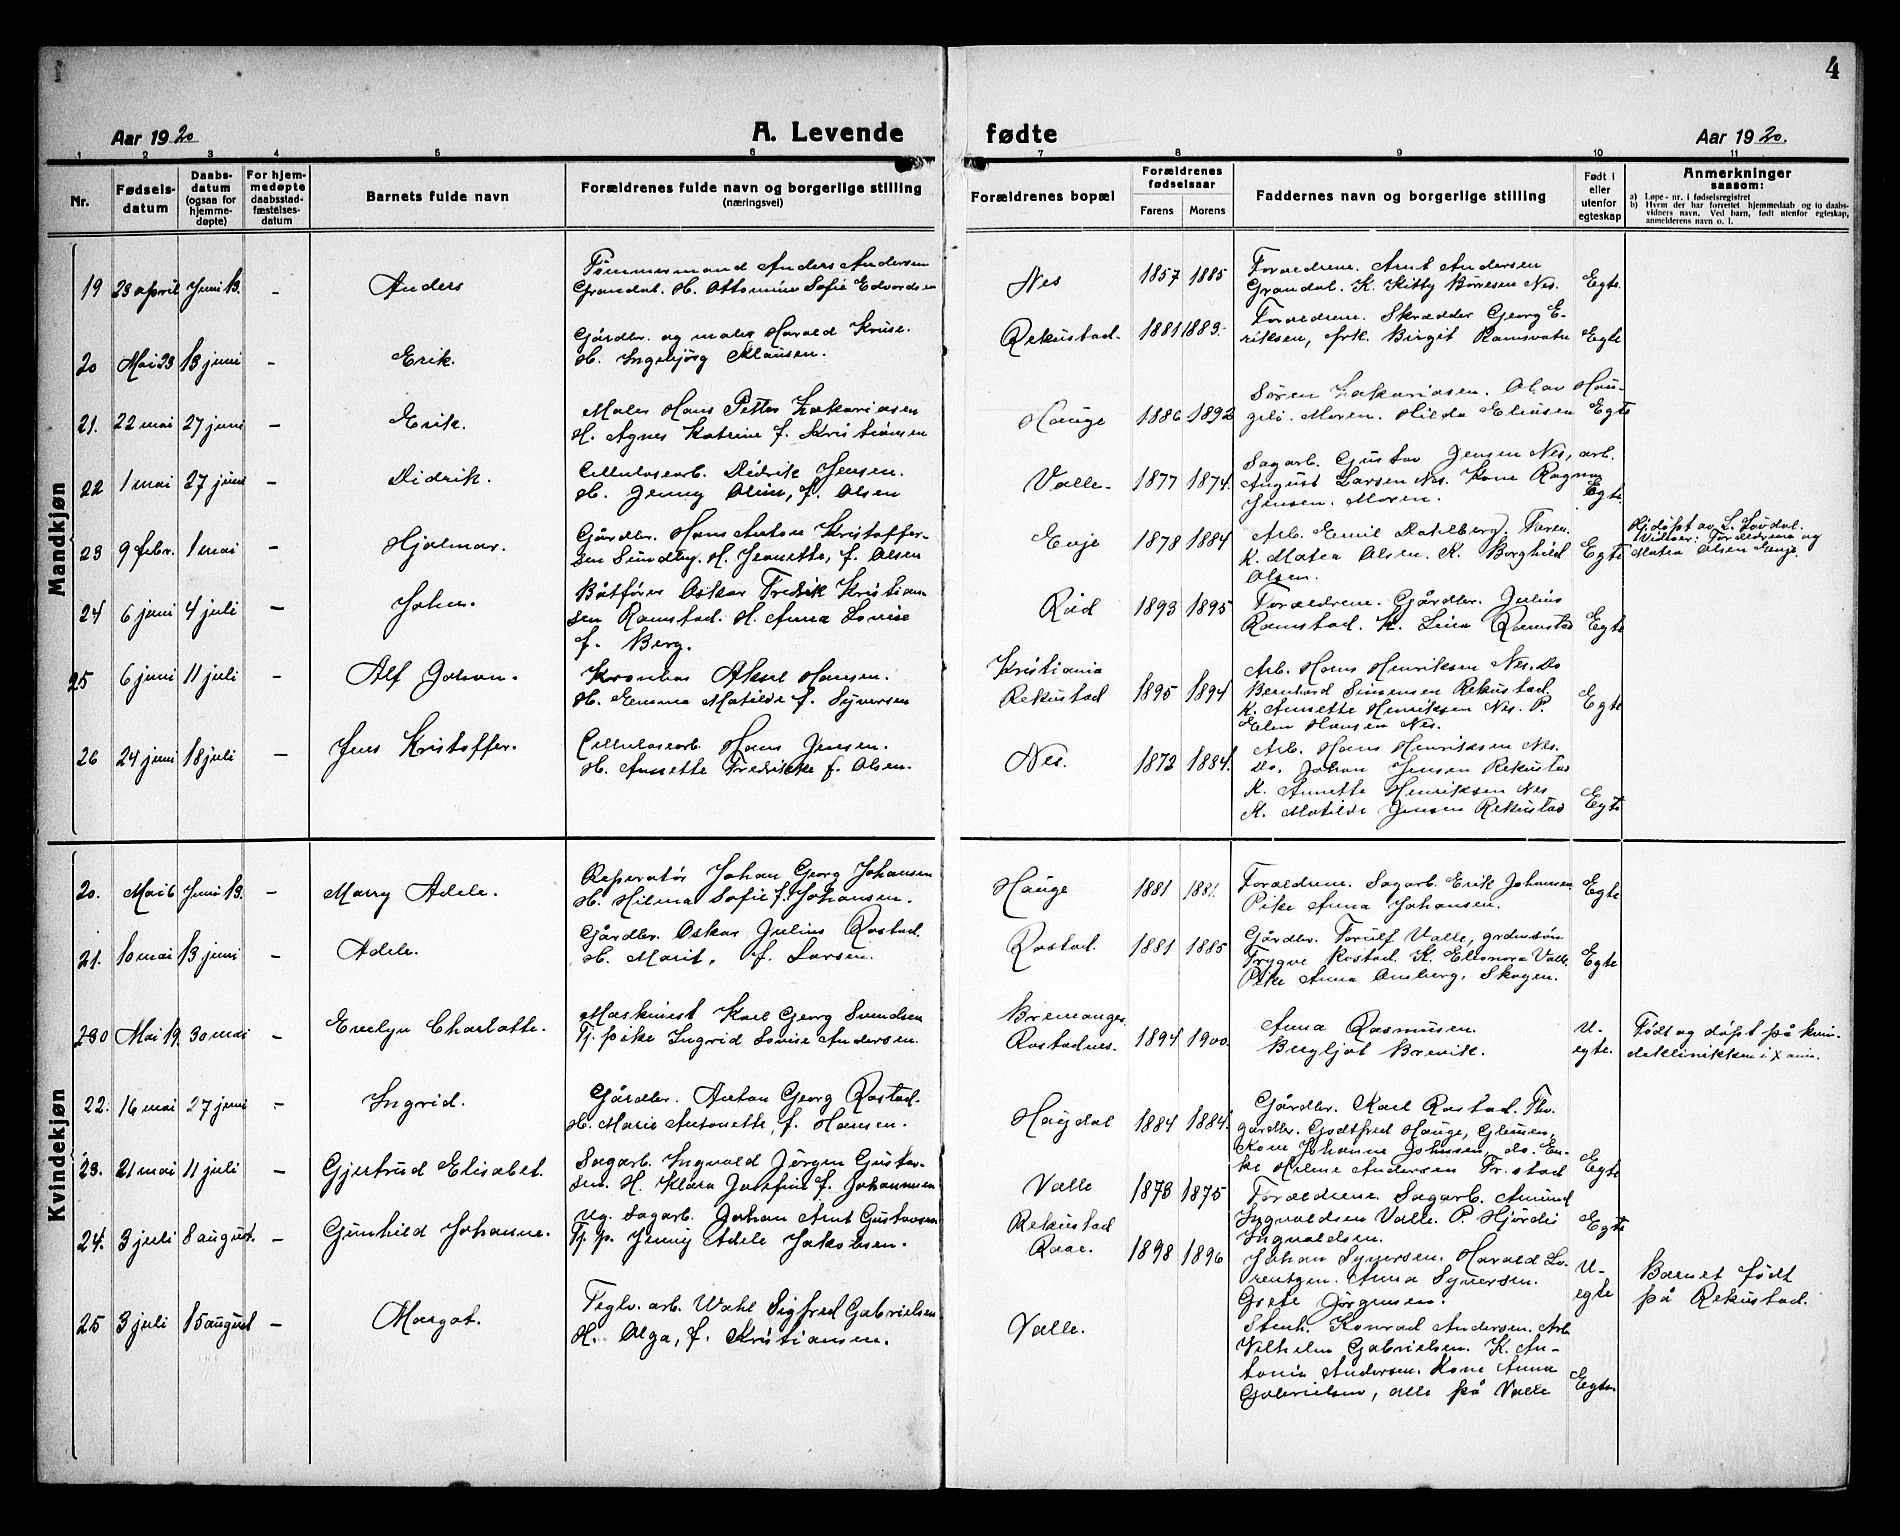 4
Aar 1920
A. Levende
fødte
Aar 1920.
1 2 3 4 5 6 7 8 9 10 11
Nr.
Fødsels-
datum
Daabs-
datum
(ogsaa for
hjemme-
døpte)
For hjem-
medøpte
daabsstad-
fæstelses-
datum
Barnets fulde navn
Forældrenes fulde navn og borgerlige stilling
(næringsvei)
Forældrenes bopæl
Forældrenes
fødselsaar
Farens Morens
Faddernes navn og borgerlige stilling
Født i
eller
utenfor
egteskap
Anmerkninger
saasom:
a) Løpe-nr. i fødselsregistret
b) Hvem der har forrettet hjemmedaab og to daabs-
vidners navn. Ved barn, født utenfor egteskap,
anmelderens navn o. l.
Mandkjøn
19 23 april Juni 13. - Anders
Tømmermand Anders Andersen
Grandal. H. Ottomine Sofie Edvardsen
Nes 1857 1885
Forældrene. Arnt Andersen
Grandal. K. Kitty Børresen Nes.
Egte
20 Mai 23 13 juni - Erik.
Gårdbr. og maler Harald Kruse.
H. Ingebjørg Klausen.
Rekustad. 1881 1883.
Forældrene. Skrædder Georg E-
riksen, frk. Birgit Ramsvatn
Egte
21. 22 mai 27 juni - Erik.
Maler Hans Petter Zakariasen
H. Agnes Katrine f. Kristiansen
Hauge 1886 1892
Søren Zakariasen. Olav Hau-
geli. Moren. Hilda Eliasen
Egte
22 1 mai 27 juni - Didrik.
Cellulosearb. Didrik Jensen.
H. Jenny Oline, f. Olsen
Valle. 1877 1874.
Sagarb. Gustav Jensen Nes, arb.
August Larsen Nes. Kone Ragna
Jensen. Moren.
Egte
23 9 febr. 1 mai - Hjalmar.
Gårdbr. Hans Anton Kristoffer-
sen Sundby. H. Jeanette, f. Olsen
Enje 1878 1884
Arb. Emil Dahlberg, Faren.
K. Matea Olsen. K. Borghild
Olsen.
Egte
Hj.døpt av L. Løvdal.
Vidner: Forældrene og
Matea Olsen Enje.
24 6 juni 4 juli - Johan.
Båtfører Oskar Fredrik Kristian-
sen Ramstad. H. Anna Lovise
f. Berg.
Rød 1893 1895
Forældrene. Gårdbr. Julius
Ramstad. K. Lina Ramstad
Egte
25 6 juni 11 juli - Alf Johan.
Aksel Hansen.
H. Emma Matilde f. Syversen
Kristiania
Rekustad 1895 1894
Arb. Hans Henriksen Nes. Do
Bernhard Simensen Rekustad
K. Annette Henriksen Nes. P.
Elen Hansen Nes.
Egte
26 24 juni 18 juli - Jens Kristoffer.
Cellulosearb. Hans Jensen.
H. Annette Fredrikke f. Olsen.
Nes. 1872 1884.
Arb. Hans Henriksen Nes.
Do. Johan Jensen Rekustad
K. Annette Henriksen Nes
K. Matilde Jensen Rekustad
Egte
Kvindekjøn
20. Mai 6 Juni 13. - Marry Adele.
Reperatør Johan Georg Johansen
H. Hilma Sofie f. Johansen.
Hauge 1881 1881.
Forældrene. Sagarb. Erik Johansen
Pike Anna Johansen.
Egte
21. 10 mai 13 juni - Adele.
Gårdbr. Oskar Julius Rostad.
H. Marit, f. Larsen.
Rostad. 1881 1885
Gårdbr. Torulf Valle, grdmsøn
Trygve Rostad. K. Eleonora Valle.
Pike Anna Omberg, Skogen.
Egte
Mai 19. 30 mai - Evelyn Charlotte.
Maskinist Karl Georg Svendsen
Tj. pike Ingrid Lovise Andersen.
Bremanges.
Rostadnes. 1894 1900.
Anna Rasmusen.
Bergljot Brevik.
U-
egte.
Født og døpt på kvin-
deklinikken i X ania.
22. 16 mai 27 juni - Ingrid.
Gårdbr. Anton Georg Rostad.
H. Marie Antonette, f. Hansen.
Haugdal 1884 1884.
Gårdbr. Karl Rostad. Fhv.
gårdbr. Godtfred Hauge, Glemen,
Kone Johanne Johnsen, do. En-
ke Helene Andersen Fr.stad
Egte
23. 21 mai 11 juli - Gjertrud Elisabet.
Sagarb. Ingvald Jørgen Gustav-
sen. H. Klara Josefine f. Johannesen
Valle 1873 1875
Forældrene. Sagarb. Amund
Ingvaldsen Valle. P. Hjørdis
Ingvaldsen.
Egte
24. 3 juli 8 august. - Gunhild Johanne.
Ug. Sagarb. Johan Arnt Gustavsen
Tj. p. Jenny Adele Jakobsen.
Rekustad
Raae. 1898 1896
Johan Syversen. Harald Lo-
rentzen. Anna Syversen.
Grete Jørgensen.
U-
egte
Barnet født
på Rekustad.
25 3 juli 15 august - Margot.
Teglv. arb. Wahl Sigfred Gabrielsen
H. Olga, f. Kristiansen.
Valle.
Stenh. Konrad Andersen. Arb
Vilhelm Gabrielsen. K. An-
tonie Andersen. Kone Anna
Gabrielsen, alle på Valle
Egte